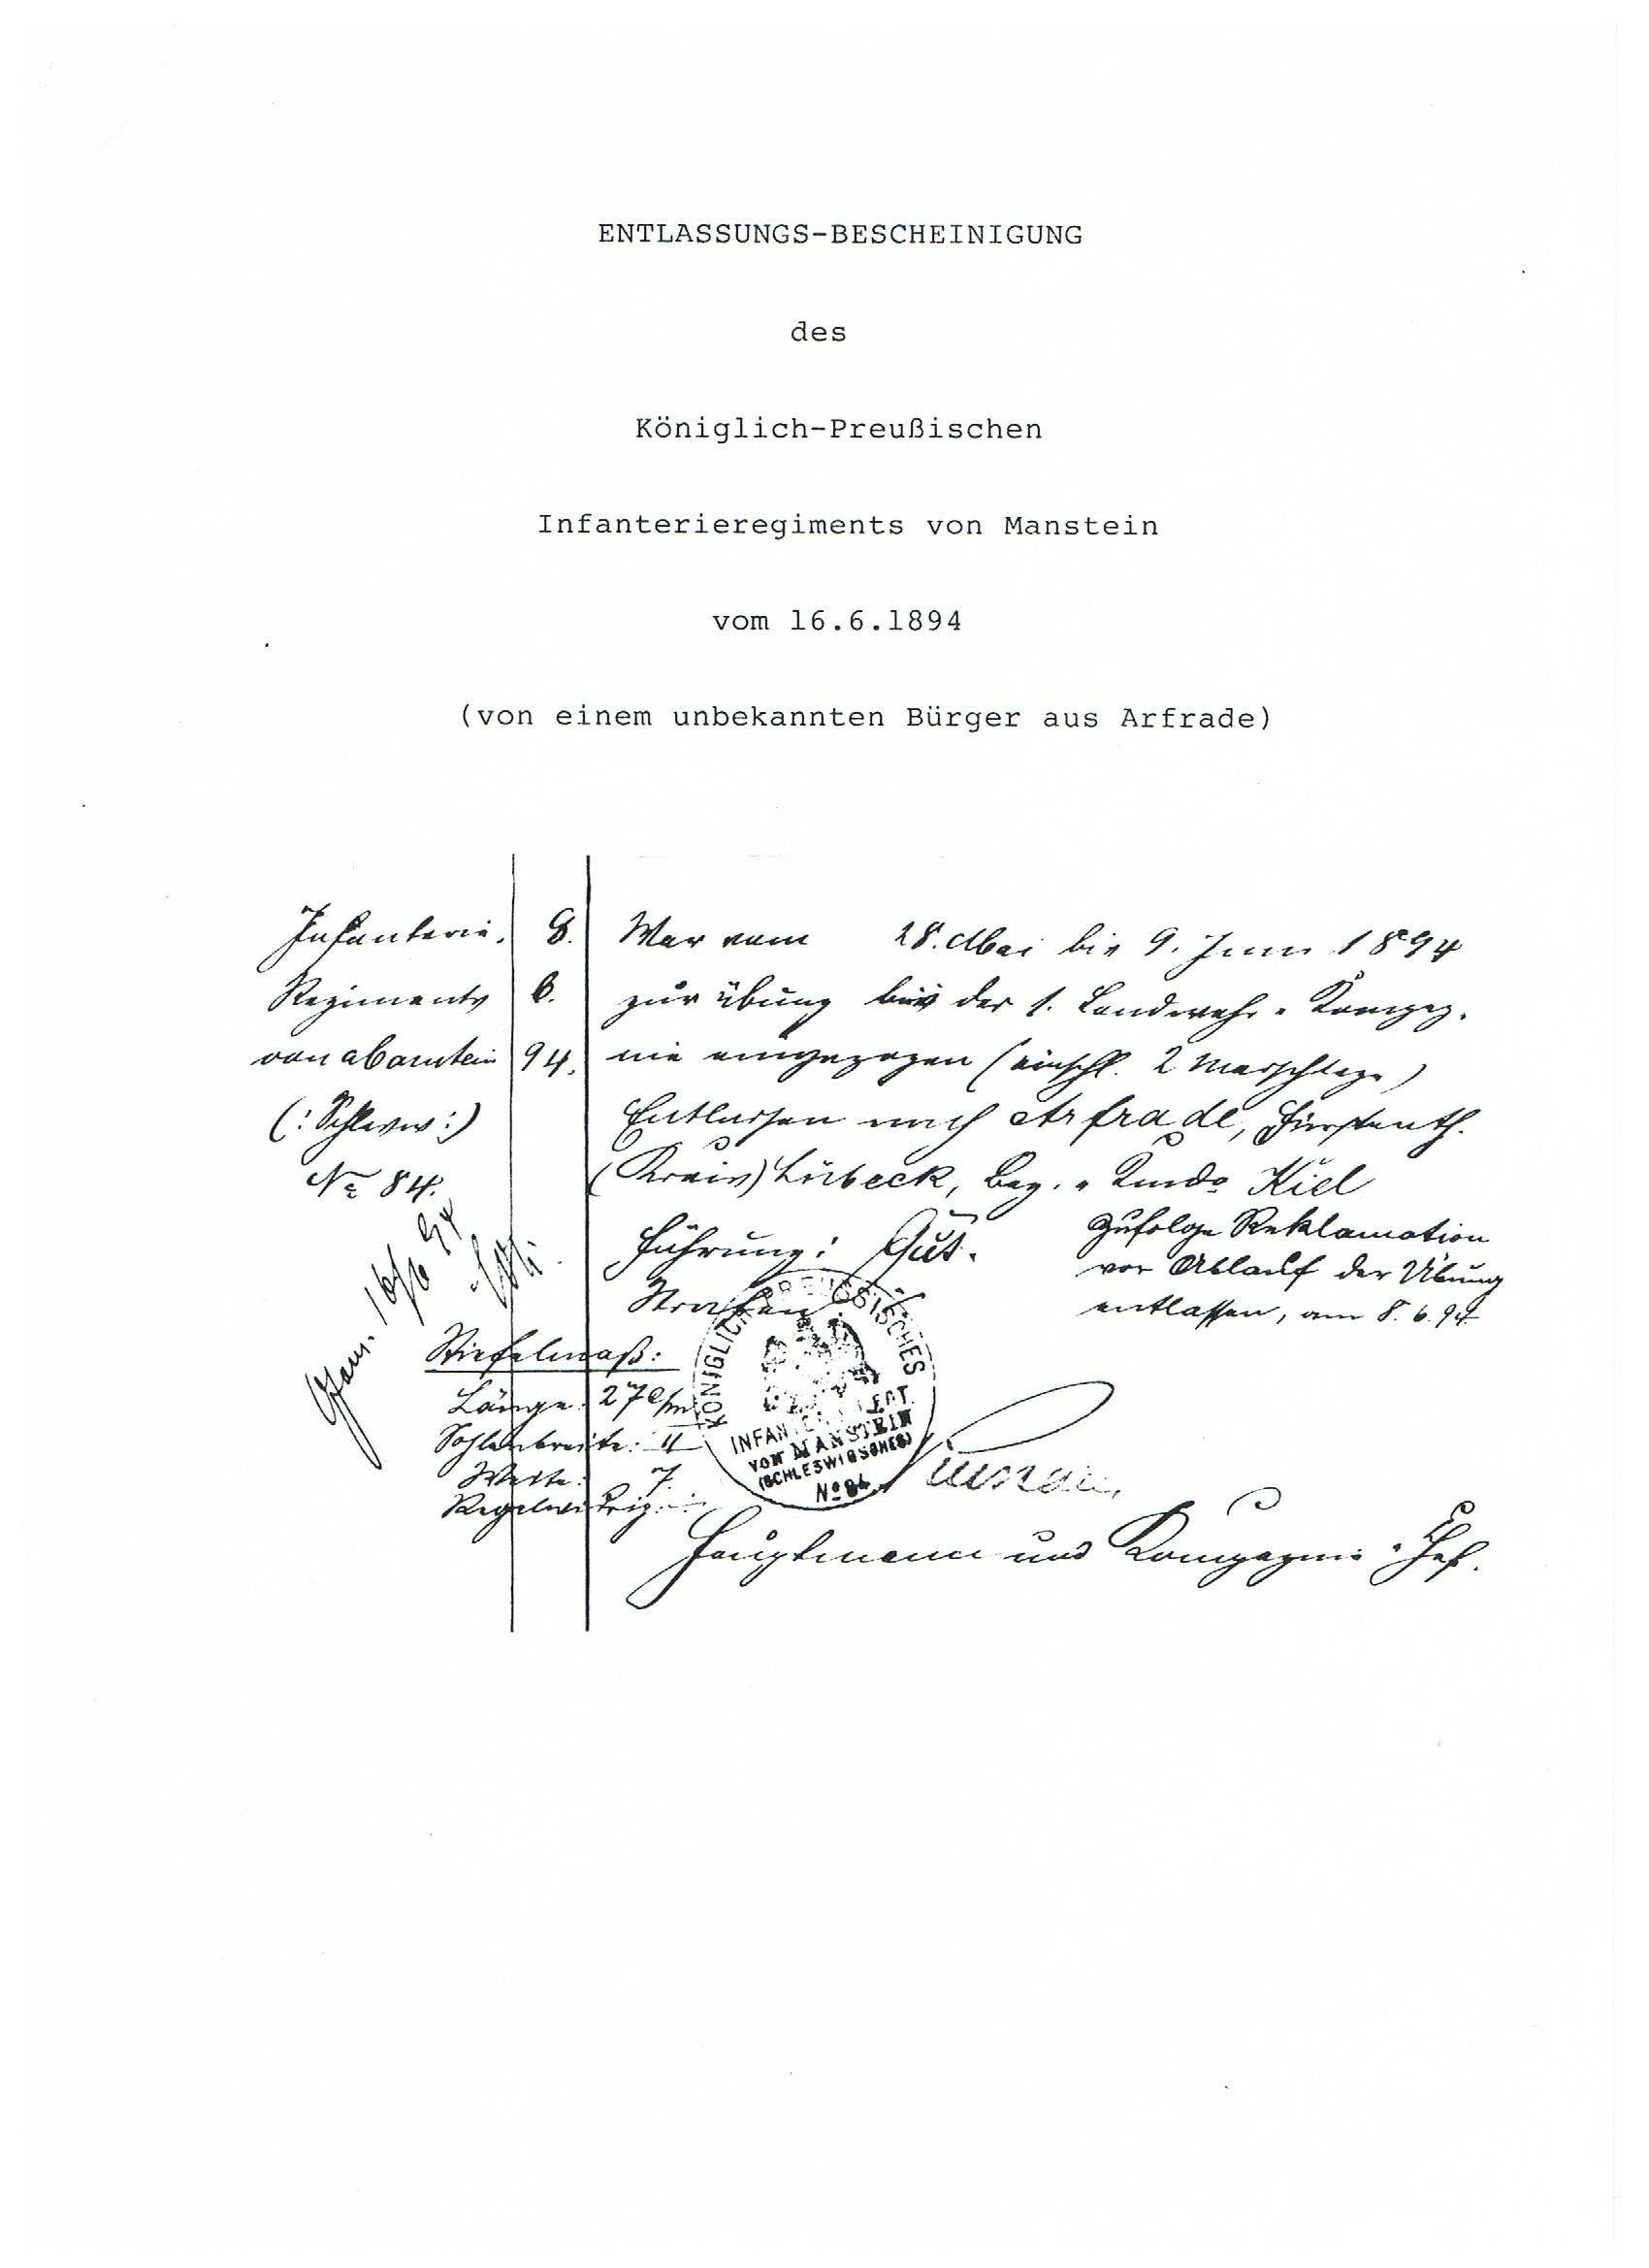 ENTLASSUNGS-BESCHEINIGUNG
des
Königlich-Preußischen
Infanterieregiments von Manstein
vom 16.6.1894
(von einem unbekannten Bürger aus Arfrade)
Infanterie-
Regiments
von Manstein
(: Schlesw :)
№ 84.
8.
6.
94.
War vom 28. Mai bis 9. Juni 1894
zur Übung bei der 1. Landwehr-Kompag-
nie eingezogen (einschl. 2 Marschtage)
Entlassen nach Arfrade, Fürstenth.
(Kreis) Lübeck, Bez.-Kmdo Kiel
Führung: Gut.
Strafen:
Zufolge Reklamation
vor Ablauf der Übung
entlassen, am 8.6.94
16/6 94
Stiefelmaß:
Länge: 27 c/m
Sohlenbreite: 11
Weite: 7
Regelwidrig:
KÖNIGLICH PREUSSISCHES
INFANTERIE REGT.
VON MANSTEIN
(SCHLESWIGSCHES)
№ 84.
Hauptmann und Kompagnie-Chef.